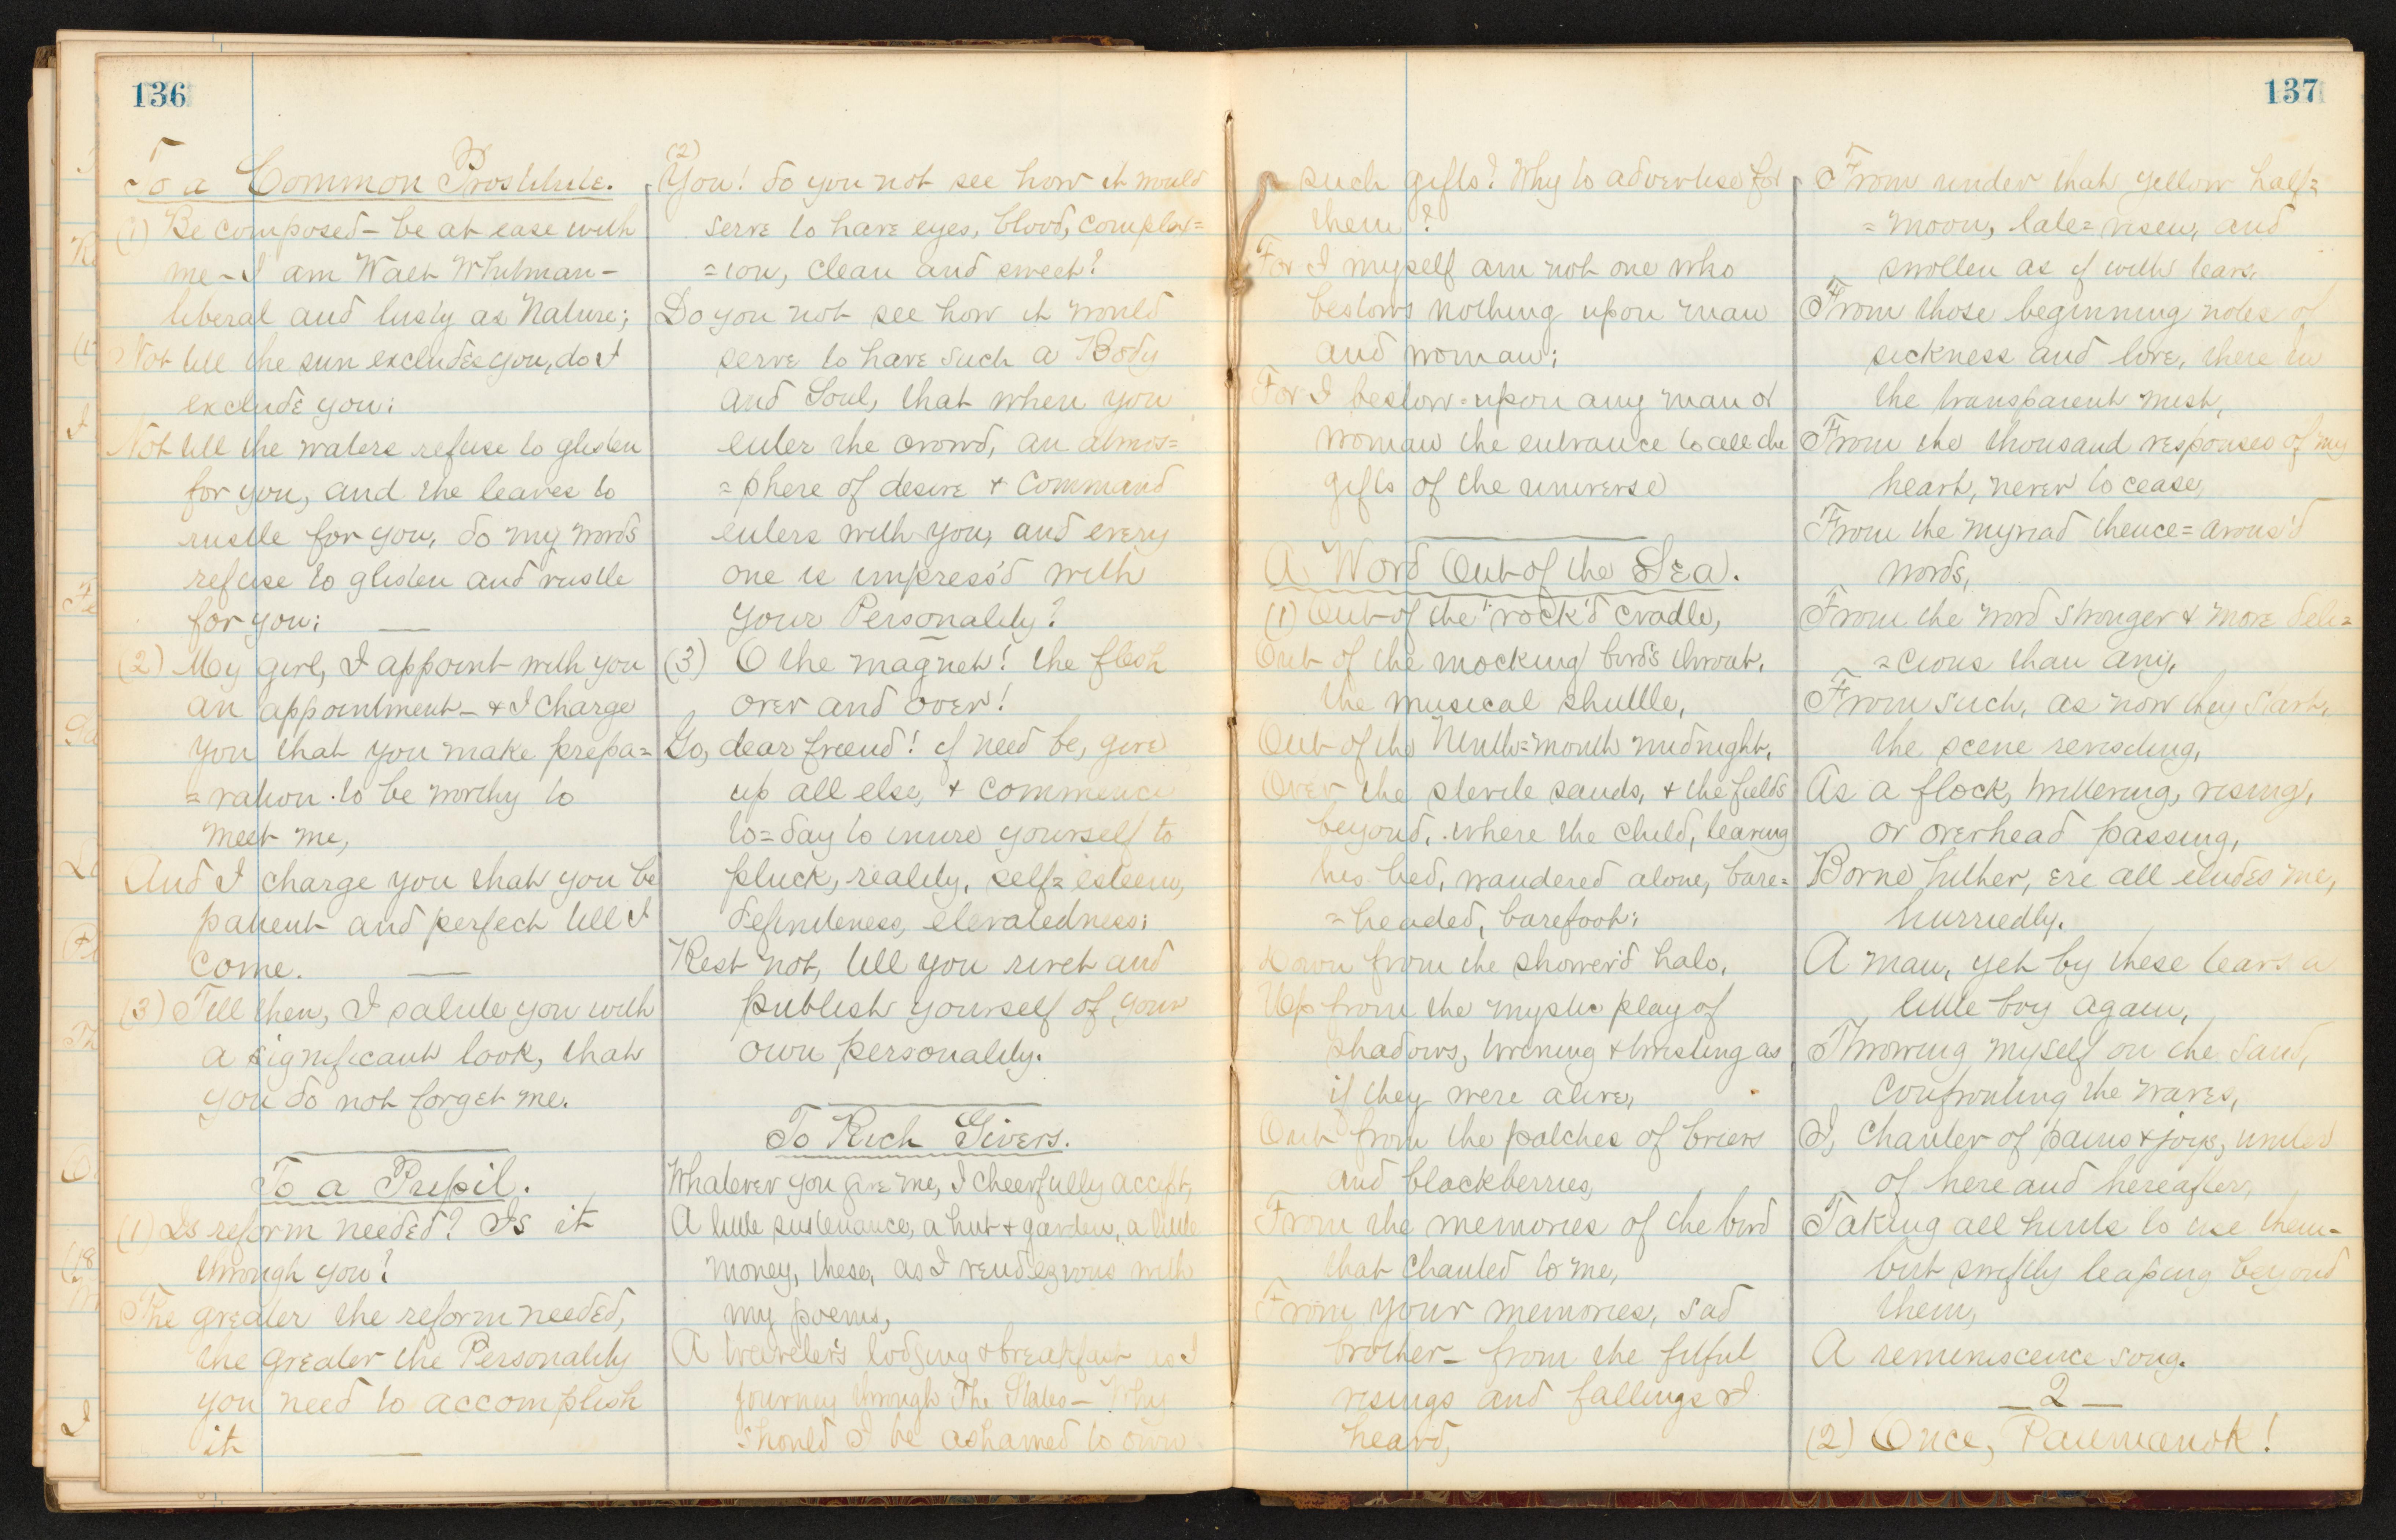 136
To a Common Prostitute.
(1) Be composed - be at ease with
me - I am Walt Whitman -
liberal and lusty as Nature;
Not till the sun excludes you, do I
exclude you;
Not till the waters refuse to glisten
for you, and the leaves to
rustle for you, do my words
refuse to glisten and rustle
for you;
(2) My girl, I appoint with you
an appointment - & I charge
you that you make prepa=
=ration to be worthy to
meet me,
And I charge you that you be
patient and perfect till I
come.
(3) Till then, I salute you with
a significant look, that
you do not forget me.
To a Pupil.
(1) Is reform needed? Is it
through you?
The greater the reform needed,
the greater the Personality
you need to accomplish
it
(2)
You! do you not see how it would
serve to have eyes, blood, complex=
=ion, clean and sweet?
Do you not see how it would
serve to have such a Body
and Soul, that when you
enter the crowd, an atmos=
=phere of desire & command
enters with you, and every
one is impress'd with
your Personality?
(3) O the magnet! the flesh
over and over!
Go, dear friend! if need be, give
up all else, & commence
to=day to inure yourself to
pluck, reality, self=esteem,
definiteness, elevatedness;
Rest not, till you rivet and
publish yourself of your
own personality.
To Rich Givers.
Whatever you give me, I cheerfully accept,
A little sustenance, a hut & garden, a little
money, these, as I rendezvous with
my poems,
A traveler's lodging & breakfast as I
journey through The States - Why
should I be ashamed to own
137
such gifts? Why to advertise for
them?
For I myself am not one who
bestows nothing upon man
and woman;
For I bestow upon any man or
woman the entrance to all the
gifts of the universe
A Word Out of the Sea.
(1) Out of the rock'd cradle,
Out of the mocking bird's throat,
the musical shuttle,
Out of the Ninth=month midnight,
Over the sterile sands, & the fields
beyond, where the child, leaving
his bed, wandered alone, bare=
=headed, barefoot;
Down from the shower'd halo,
Up from the mystic play of
shadows, twining & twisting as
if they were alive,
Out from the patches of briers
and blackberries,
From the memories of the bird
that chanted to me,
From your memories, sad
brother - from the fitful
risings and fallings I
heard,
From under that yellow half=
=moon, late=risen, and
swollen as if with tears,
From those beginning notes of
sickness and love, there in
the transparent mist,
From the thousand responses of my
heart, never to cease,
From the myriad thence=arous'd
words,
From the word stronger & more deli=
=cious than any,
From such, as now they start,
the scene revisiting,
As a flock, twittering, rising,
or overhead passing,
Borne hither, ere all eludes me,
hurriedly.
A man, yet by these tears a
little boy again,
Throwing myself on the sand,
Confronting the waves,
I, chanter of pains & joys, uniter
of here and hereafter,
Taking all hints to use them -
but swiftly leaping beyond
them,
A reminiscence song.
2
(2) Once, Paumanok!